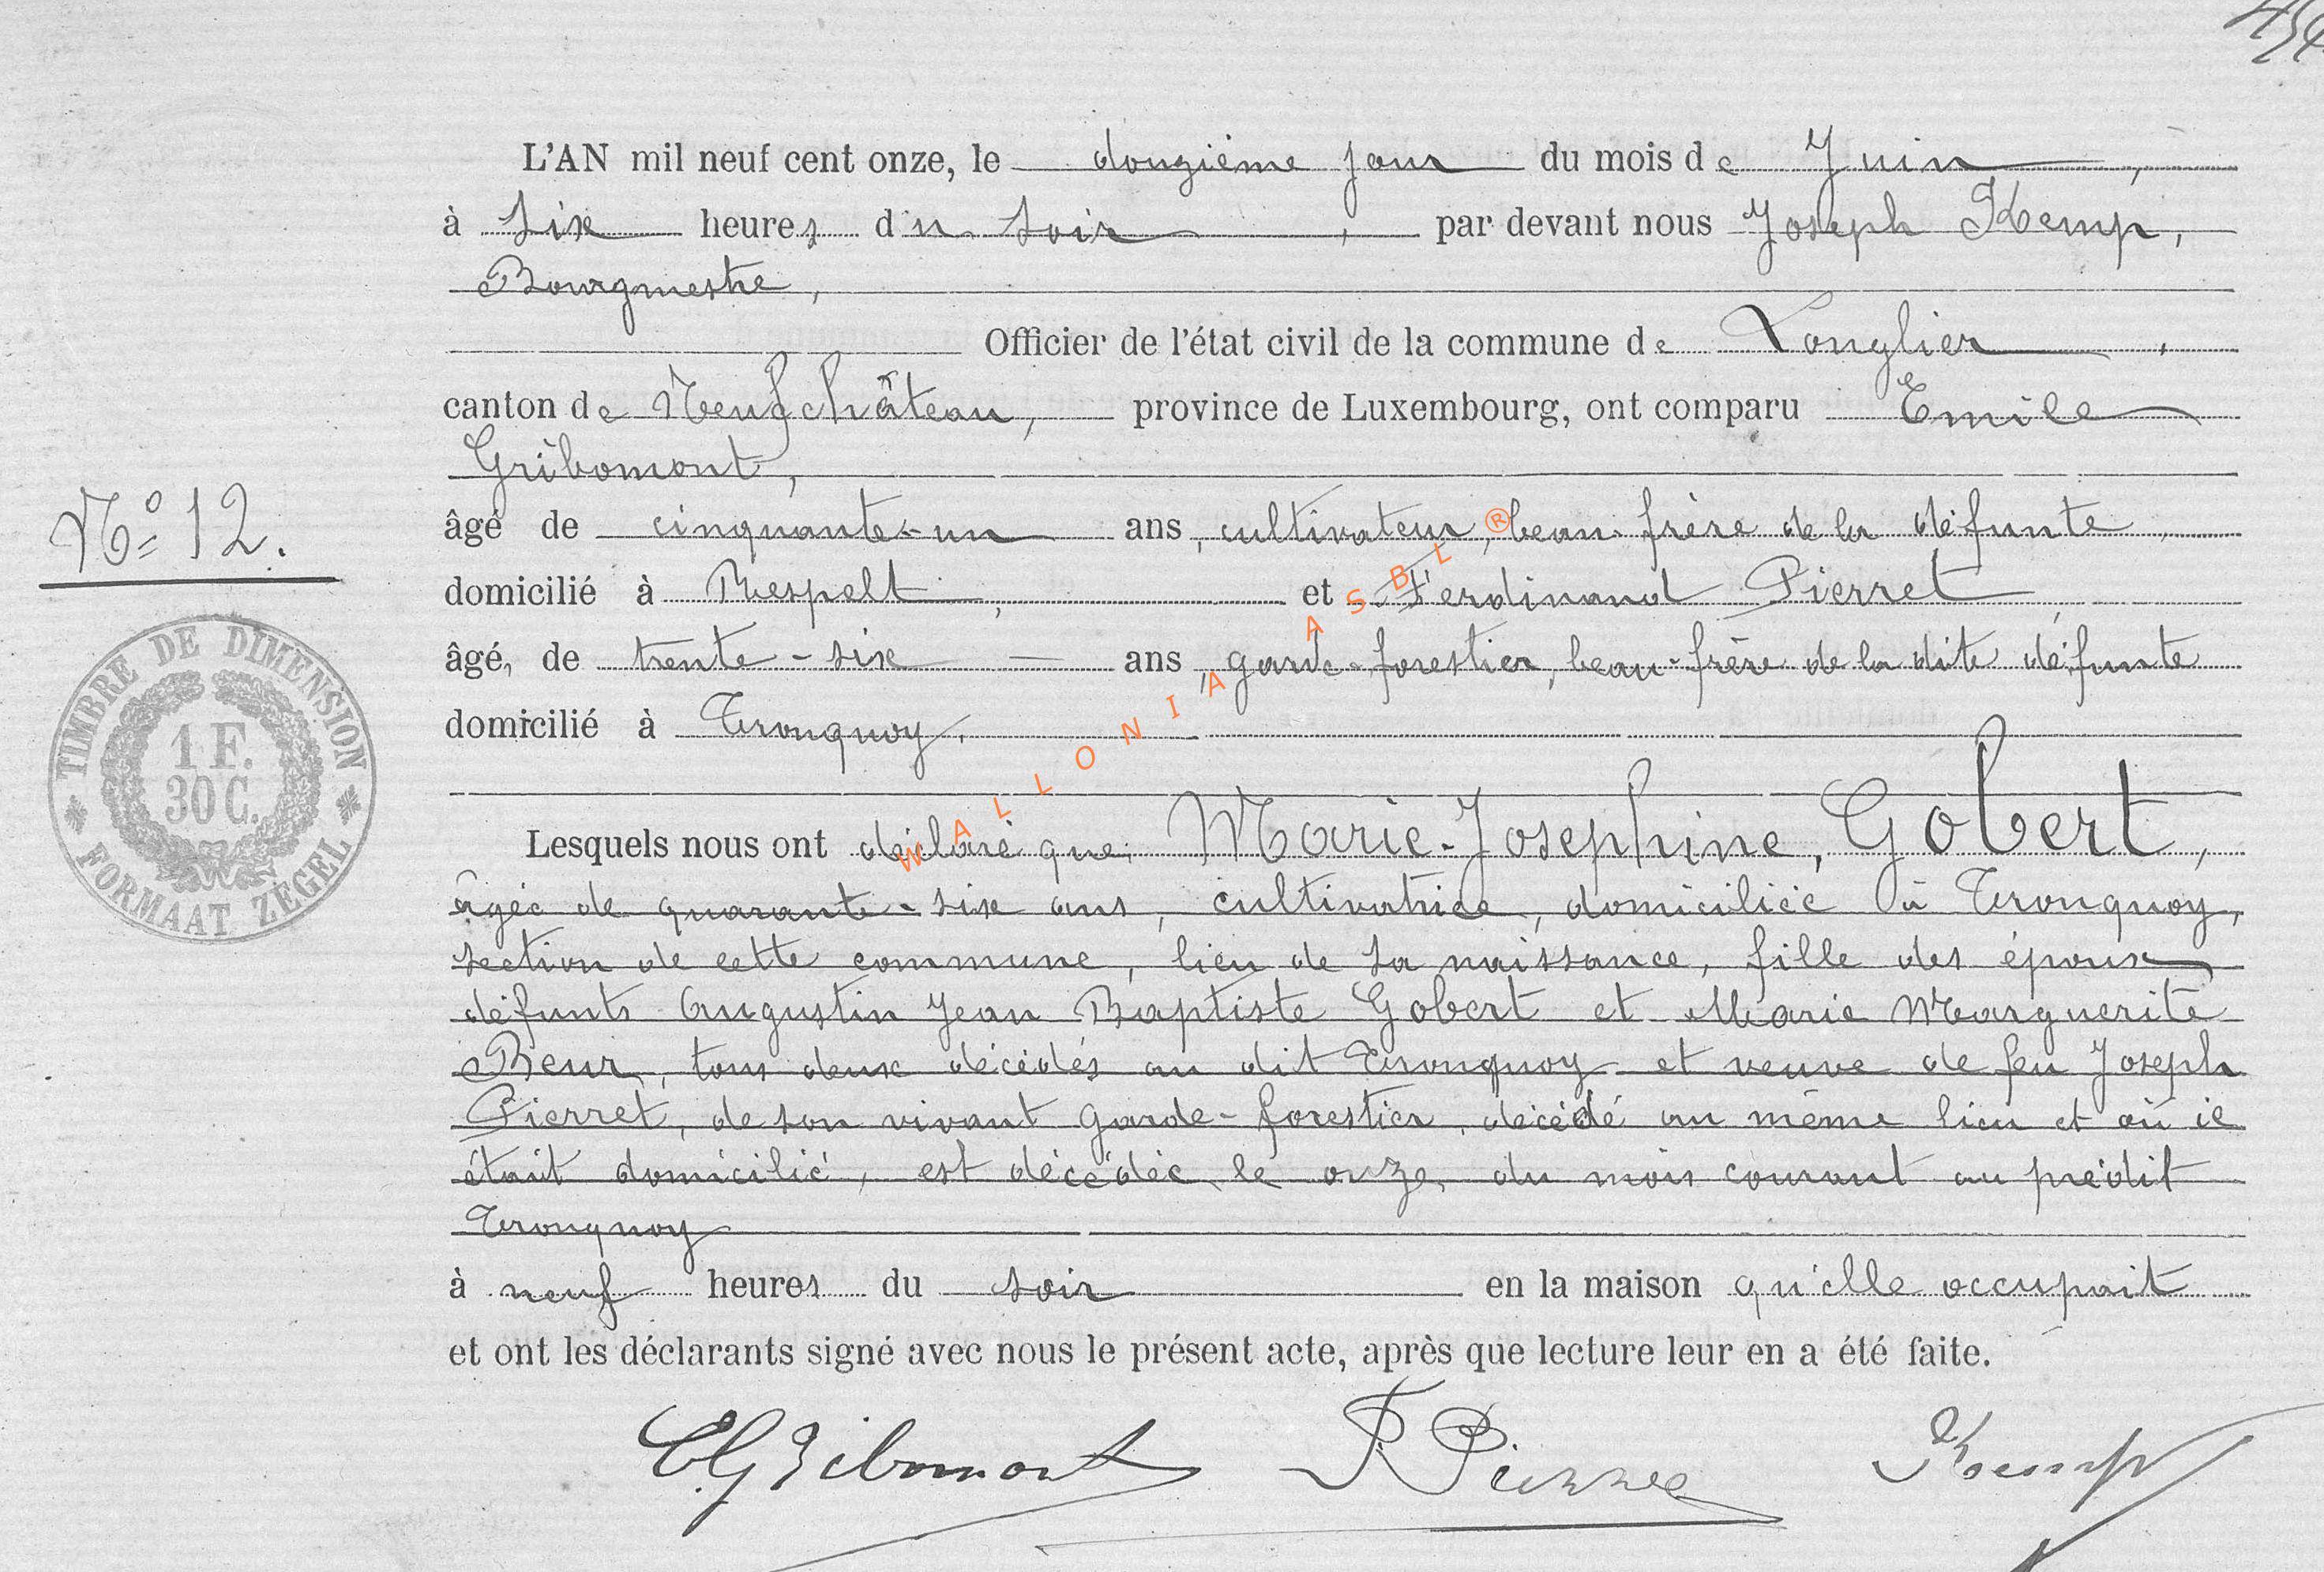 L'AN mil neuf cent onze, le douzième jour du mois de Juin,
à six heures du soir, par devant nous Joseph Kemp,
Bourgmestre,
Officier de l'état civil de la commune de Longlier,
canton de Neufchâteau, province de Luxembourg, ont comparu Emile
Gribomont,
âgé de cinquante-un ans, cultivateur, beau-frère de la défunte,
N° 12.
domicilié à Respelt, et Ferdinand Pierret,
âgé, de trente-six ans, garde-forestier, beau-frère de la dite défunte
domicilié à Tronquoy.
TIMBRE DE DIMENSION
1 F.
30 C.
FORMAAT ZEGEL
WALLONIA ASBL ®
Lesquels nous ont déclaré que Marie-Josephine, Gobert,
âgée de quarante-six ans, cultivatrice, domiciliée à Tronquoy,
section de cette commune, lieu de sa naissance, fille des époux
défunts Augustin Jean Baptiste Gobert et Marie Marguerite
, tous deux décédés au dit Tronquoy et veuve de feu Joseph
Pierret, de son vivant garde-forestier, décédé au même lieu et où il
était domicilié, est décédée le onze du mois courant au prédit
Tronquoy
à neuf heures du soir en la maison qu'elle occupait
et ont les déclarants signé avec nous le présent acte, après que lecture leur en a été faite.
EGribomont F Pierret Kemp